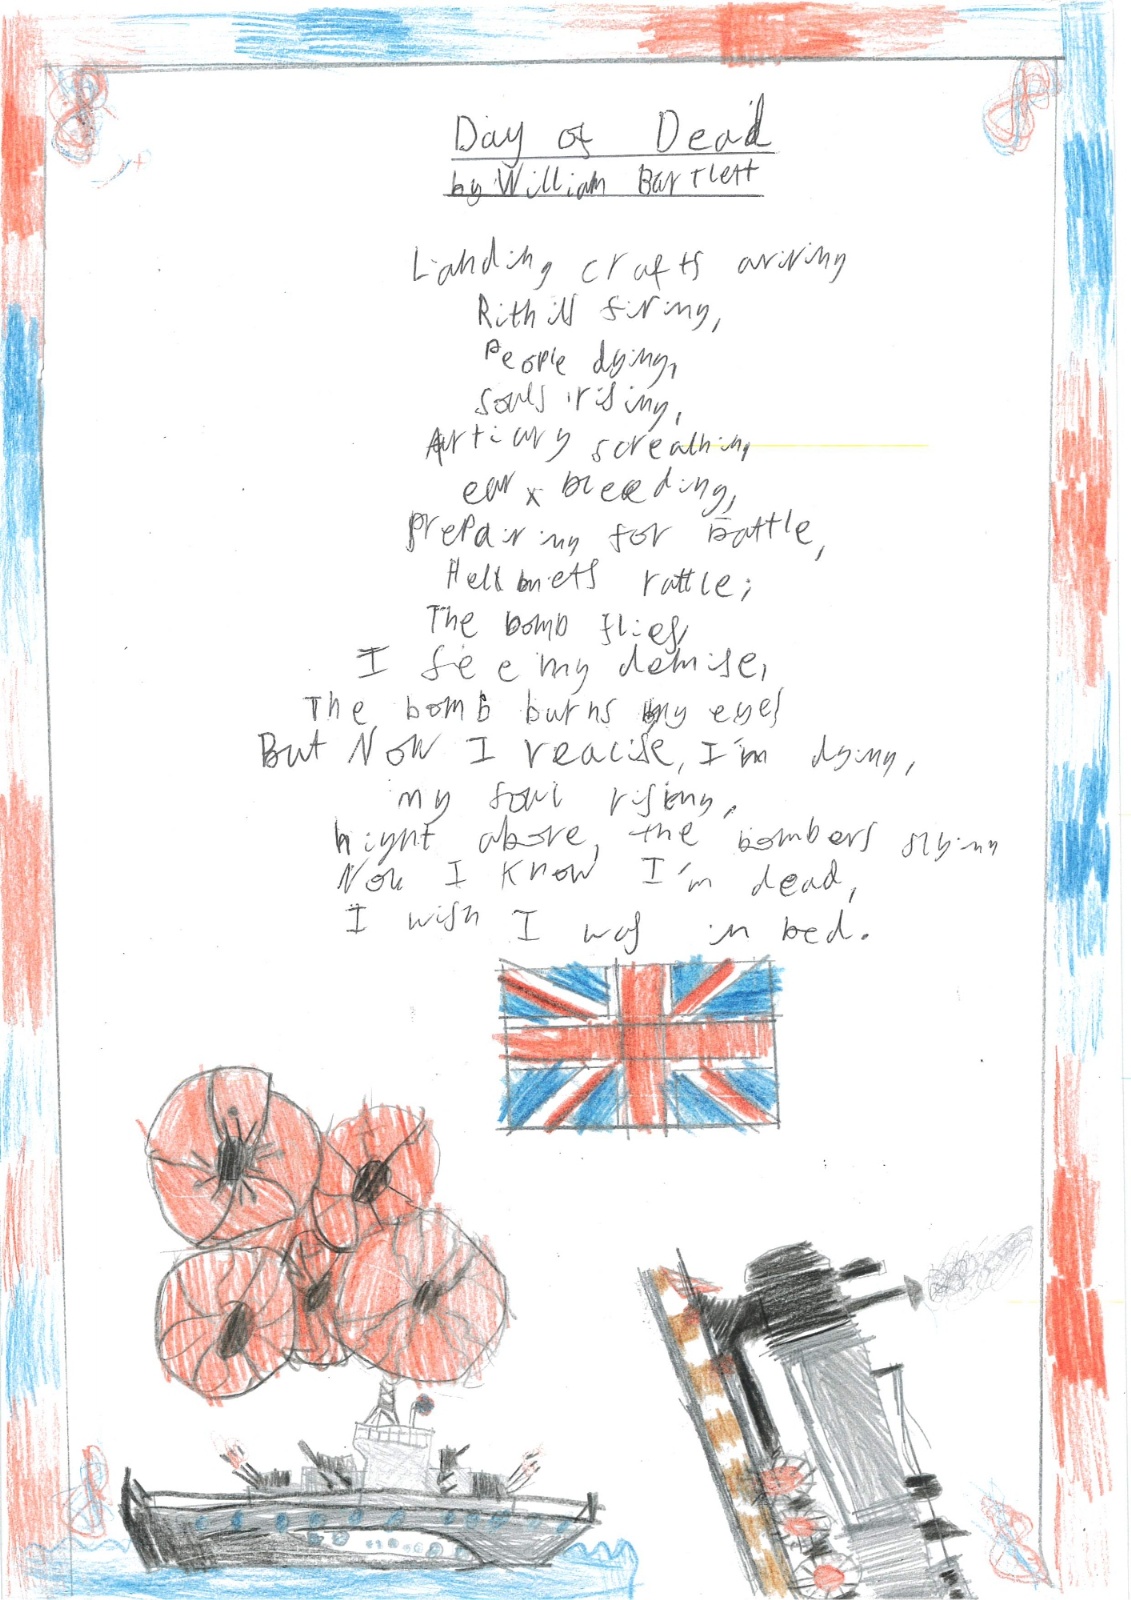 Day of Dead
by William Bartlett
Landing crafts ariving
firing,
People dying,
Souls rising,
Artilary
ear x bleeding,
Prepairing for Battle,
rattle;
The bomb flies,
I see my demise,
The bomb burns my eyes
But Now I realise, I'm dying,
my soul rising,
hight above, the bombers flying
Now I know I'm dead,
I wish I was in bed.